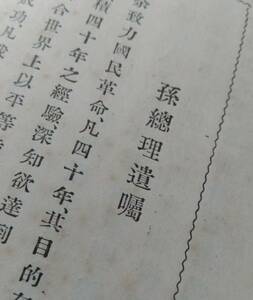 孫總理遺囑
致力國民革命、凡四十年、其目的在
積四十年之經驗、深知欲達到
合世界上以平等
功、凡